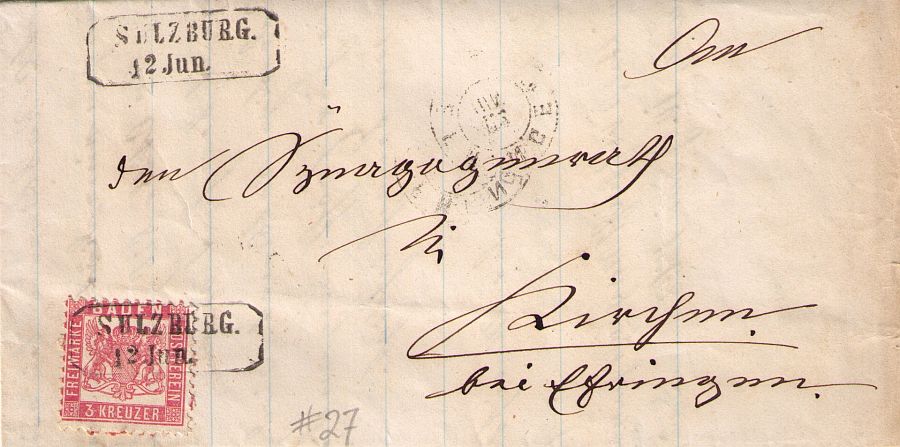 SULZBURG.
12 Jun.
An
den Synagogenrath
in
Kirchen
bei Efringen.
BADEN
FREIMARKE
POSTVEREIN
3 KREUZER
SULZBURG.
12 Jun.
#27